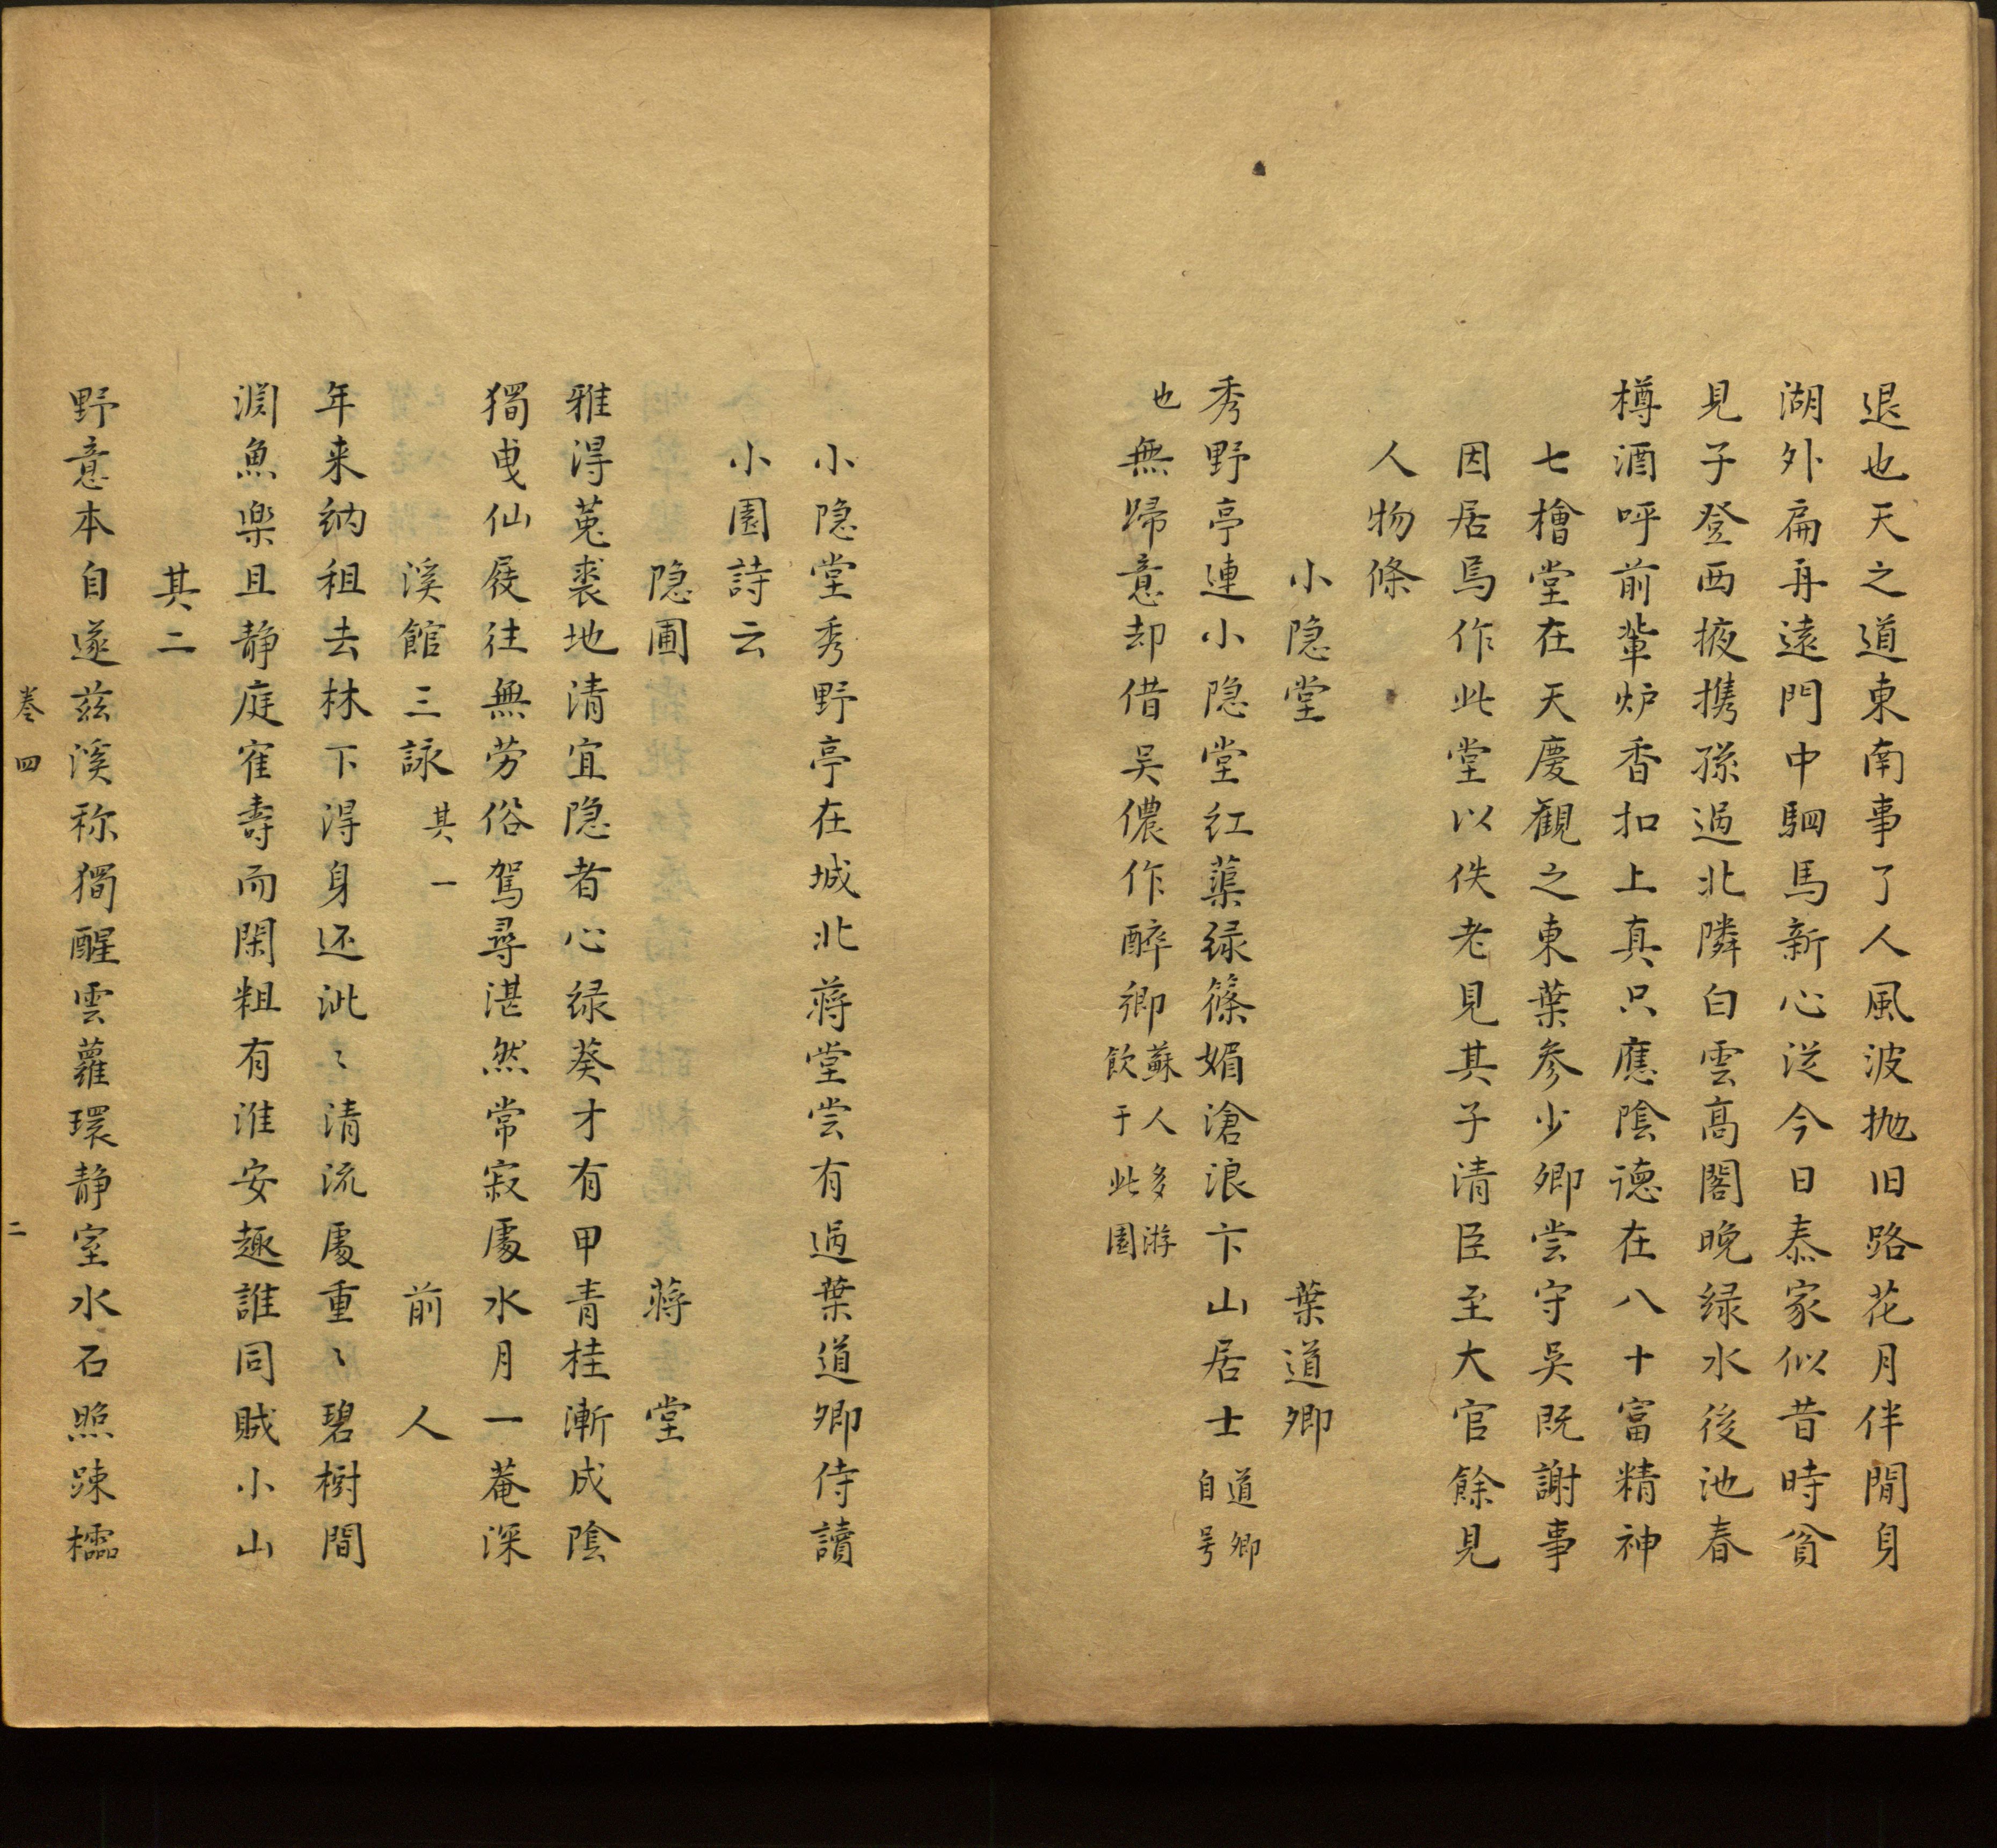 退也天之道東南事了人風波抛旧路花月伴閒身
湖外扁舟遠門中駟馬新心従今日泰家似昔時貧
見子登西掖携孫過北隣白雲高閣晩緑水後池春
樽酒呼前輩炉香扣上真只應陰德在八十富精神
七檜堂在天慶觀之東葉参少卿尝守吴既謝事
因居焉作此堂以佚老見其子清臣至大官餘見
人物條
小隐堂 葉道卿
秀野亭連小隐堂红蕖緑篠媚滄浪卞山居士
道卿
自号
也
無歸意却借吴儂作醉卿
蘇人多游
飲于此園
小隐堂秀野亭在城北蒋堂尝有過葉道卿侍讀
小園詩云
隐圃 蒋堂
雅淂菟裘地清宜隐者心緑葵才有甲青桂漸成陰
獨曳仙屐往無劳俗駕尋湛然常寂處水月一菴深
溪館三詠 其一 前人
年来納祖去林下淂身还泚〻清流處重〻碧樹間
渊魚楽且静庭隺壽而閑粗有淮安趣誰同賦小山
其二
野意本自遂兹溪称獨醒雲蘿環静室水石照踈櫺
巻四
二